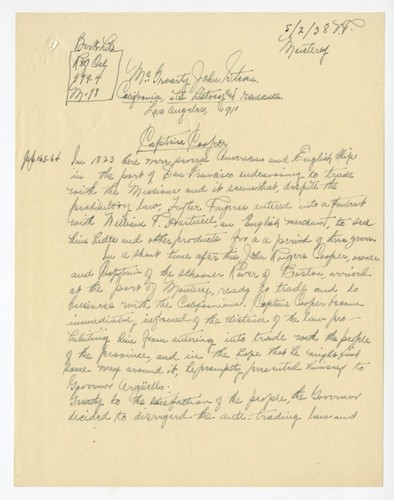 5/2/38
Monterey
Ref Cal
979.4
M-18
Mc Groarty, John Steven
California its history and romance
Los Angeles, 1911
Captain Cooper
In 1823 there were several American and English ships
in the port of San Francisco endeavoring to trade
with the Missions and it seems that, despite the
prohibitory law, Father Payeras entered into a contract
with William E. Hartnell, an English merchant, to sell
him hides and other products for a period of three years.
In a short time after this John Rodgers Cooper, owner
and Captain of the schooner Rover of Boston, arrived
at the port of Monterey, ready to trade and do
business with the Californians. Captain Cooper became
immediately informed of the of the law pro-
hibiting him from entering into trade with the people
of the province, and in the hope that he might find
some way around it, he promptly presented himself to
Governor Argüello.
Greatly to the satisfaction of the people, the Governor
decided to disregard the anti-trading law and